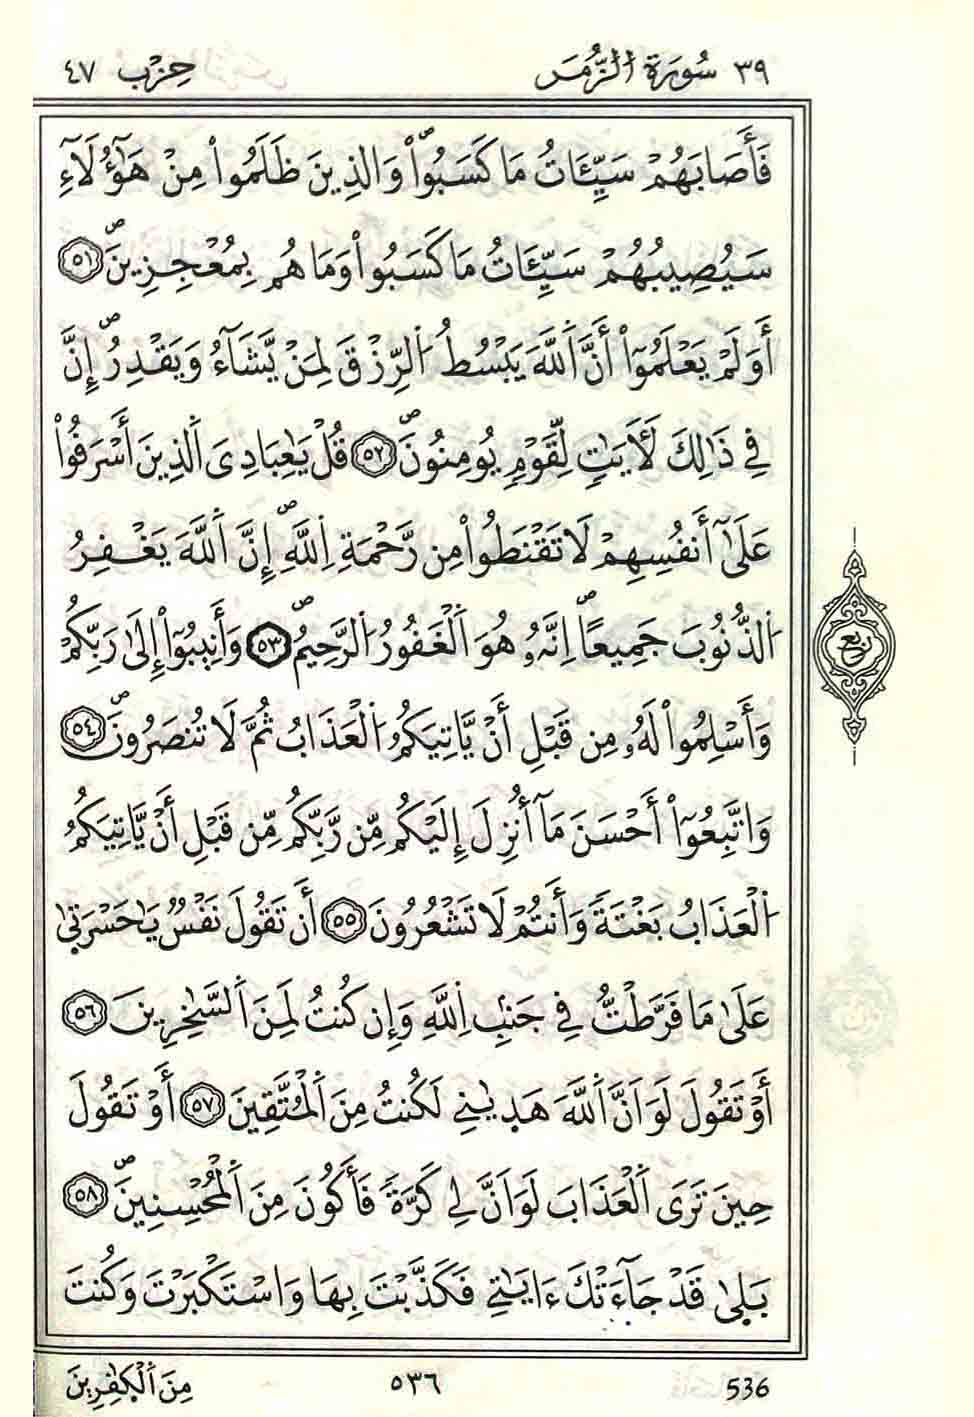 ٣٩ سُورَةُ الزُّمَرِ حِزْب ٤٧
فَأَصَابَهُمْ سَيِّـَٔاتُ مَا كَسَبُواْۖ وَالذِينَ ظَلَمُواْ مِنْ هَٰٓؤُلَآءِ
سَيُصِيبُهُمْ سَيِّـَٔاتُ مَا كَسَبُواْ وَمَا هُم بِمُعْجِزِينَۖ ٥١
أَوَلَمْ يَعْلَمُوٓاْ أَنَّ اَللَّهَ يَبْسُطُ اُلرِّزْقَ لِمَنْ يَّشَآءُ وَيَقْدِرُۖ إِنَّ
فِي ذَٰلِكَ لَأٓيَٰتٍ لِّقَوْمٍ يُومِنُونَۖ ٥٢ قُلْ يَٰعِبَادِيَ اَلذِينَ أَسْرَفُواْ
عَلَىٰٓ أَنفُسِهِمْ لَا تَقْنَطُواْ مِن رَّحْمَةِ اِللَّهِۖ إِنَّ اَللَّهَ يَغْفِرُ
اُلذُّنُوبَ جَمِيعاًۖ اِنَّهُۥ هُوَ اَلْغَفُورُ اُلرَّحِيمُۖ ٥٣ وَأَنِيبُوٓاْ إِلَىٰ رَبِّكُمْ
وَأَسْلِمُواْ لَهُۥ مِن قَبْلِ أَنْ يَّاتِيَكُمُ اُلْعَذَابُ ثُمَّ لَا تُنصَرُونَۖ ٥٤
وَاتَّبِعُوٓاْ أَحْسَنَ مَآ أُنزِلَ إِلَيْكُم مِّن رَّبِّكُم مِّن قَبْلِ أَنْ يَّاتِيَكُمُ
اُلْعَذَابُ بَغْتَةً وَأَنتُمْ لَا تَشْعُرُونَ ٥٥ أَن تَقُولَ نَفْسٌ يَٰحَسْرَتَىٰ
عَلَىٰ مَا فَرَّطتُّ فِي جَنۢبِ اِللَّهِ وَإِن كُنتُ لَمِنَ اَلسَّٰخِرِينَ ٥٦
أَوْ تَقُولَ لَوَ اَنَّ اَللَّهَ هَدَىٰنِي لَكُنتُ مِنَ اَلْمُتَّقِينَ ٥٧ أَوْ تَقُولَ
حِينَ تَرَى اَلْعَذَابَ لَوَ اَنَّ لِي كَرَّةً فَأَكُونَ مِنَ اَلْمُحْسِنِينَۖ ٥٨
بَلَىٰ قَدْ جَآءَتْكَ ءَايَٰتِي فَكَذَّبْتَ بِهَا وَاسْتَكْبَرْتَ وَكُنتَ
ربع
مِنَ اَلْكَٰفِرِينَ ٥٣٦ 536